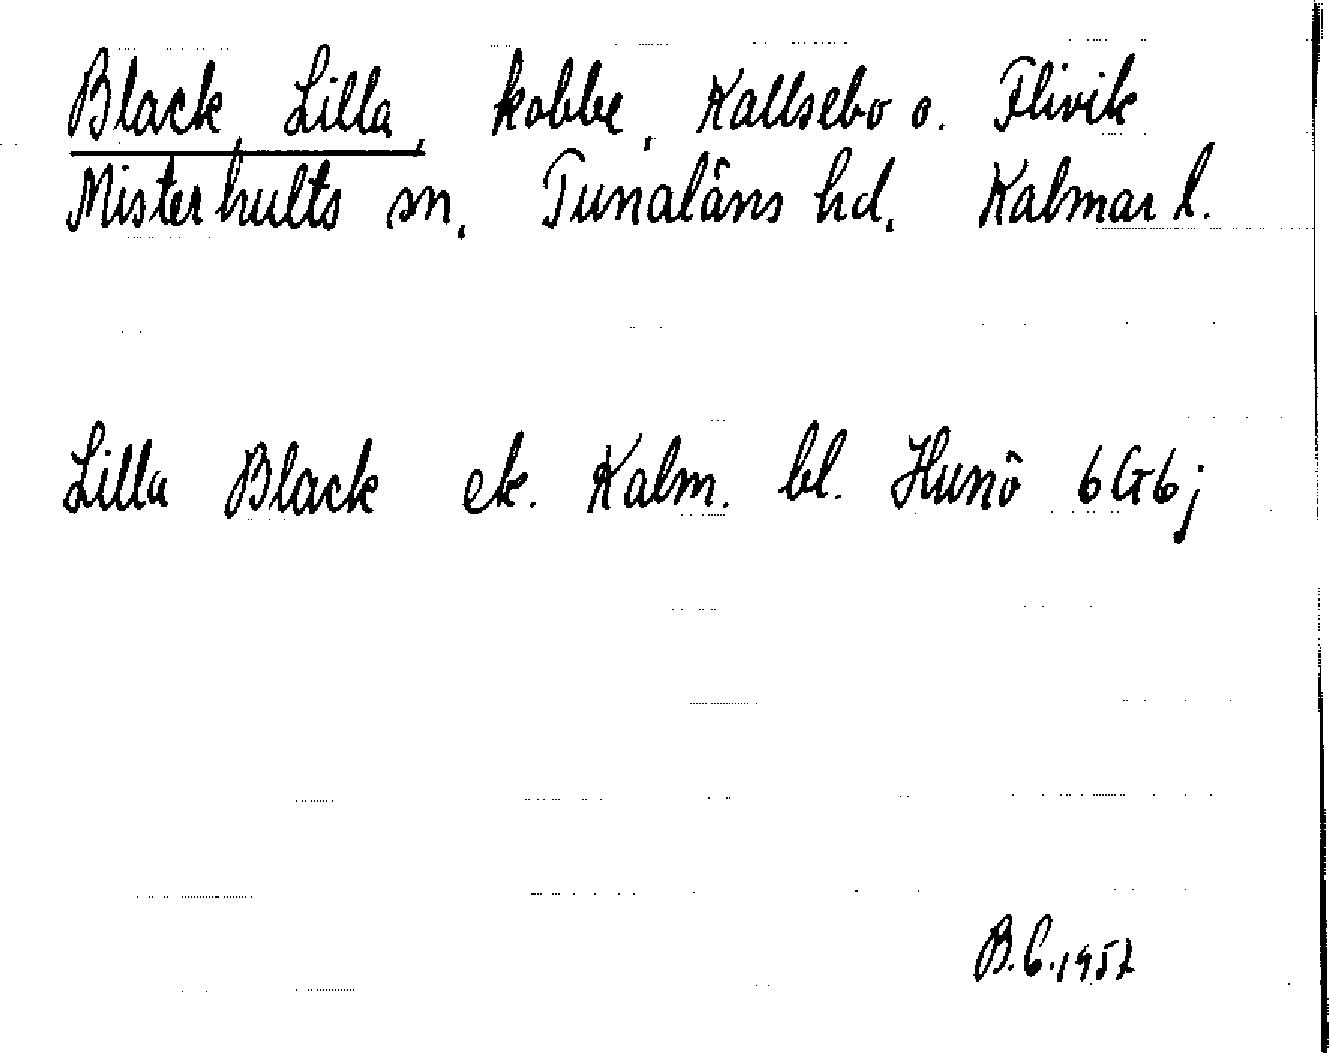 Black, Lilla, kobbe, Kallsebo o. Flivik
Misterhults sn, Tunaläns hd, Kalmar l.
Lilla Black ek. Kalm. bl. Hunö 6G6j
B.C. 1952